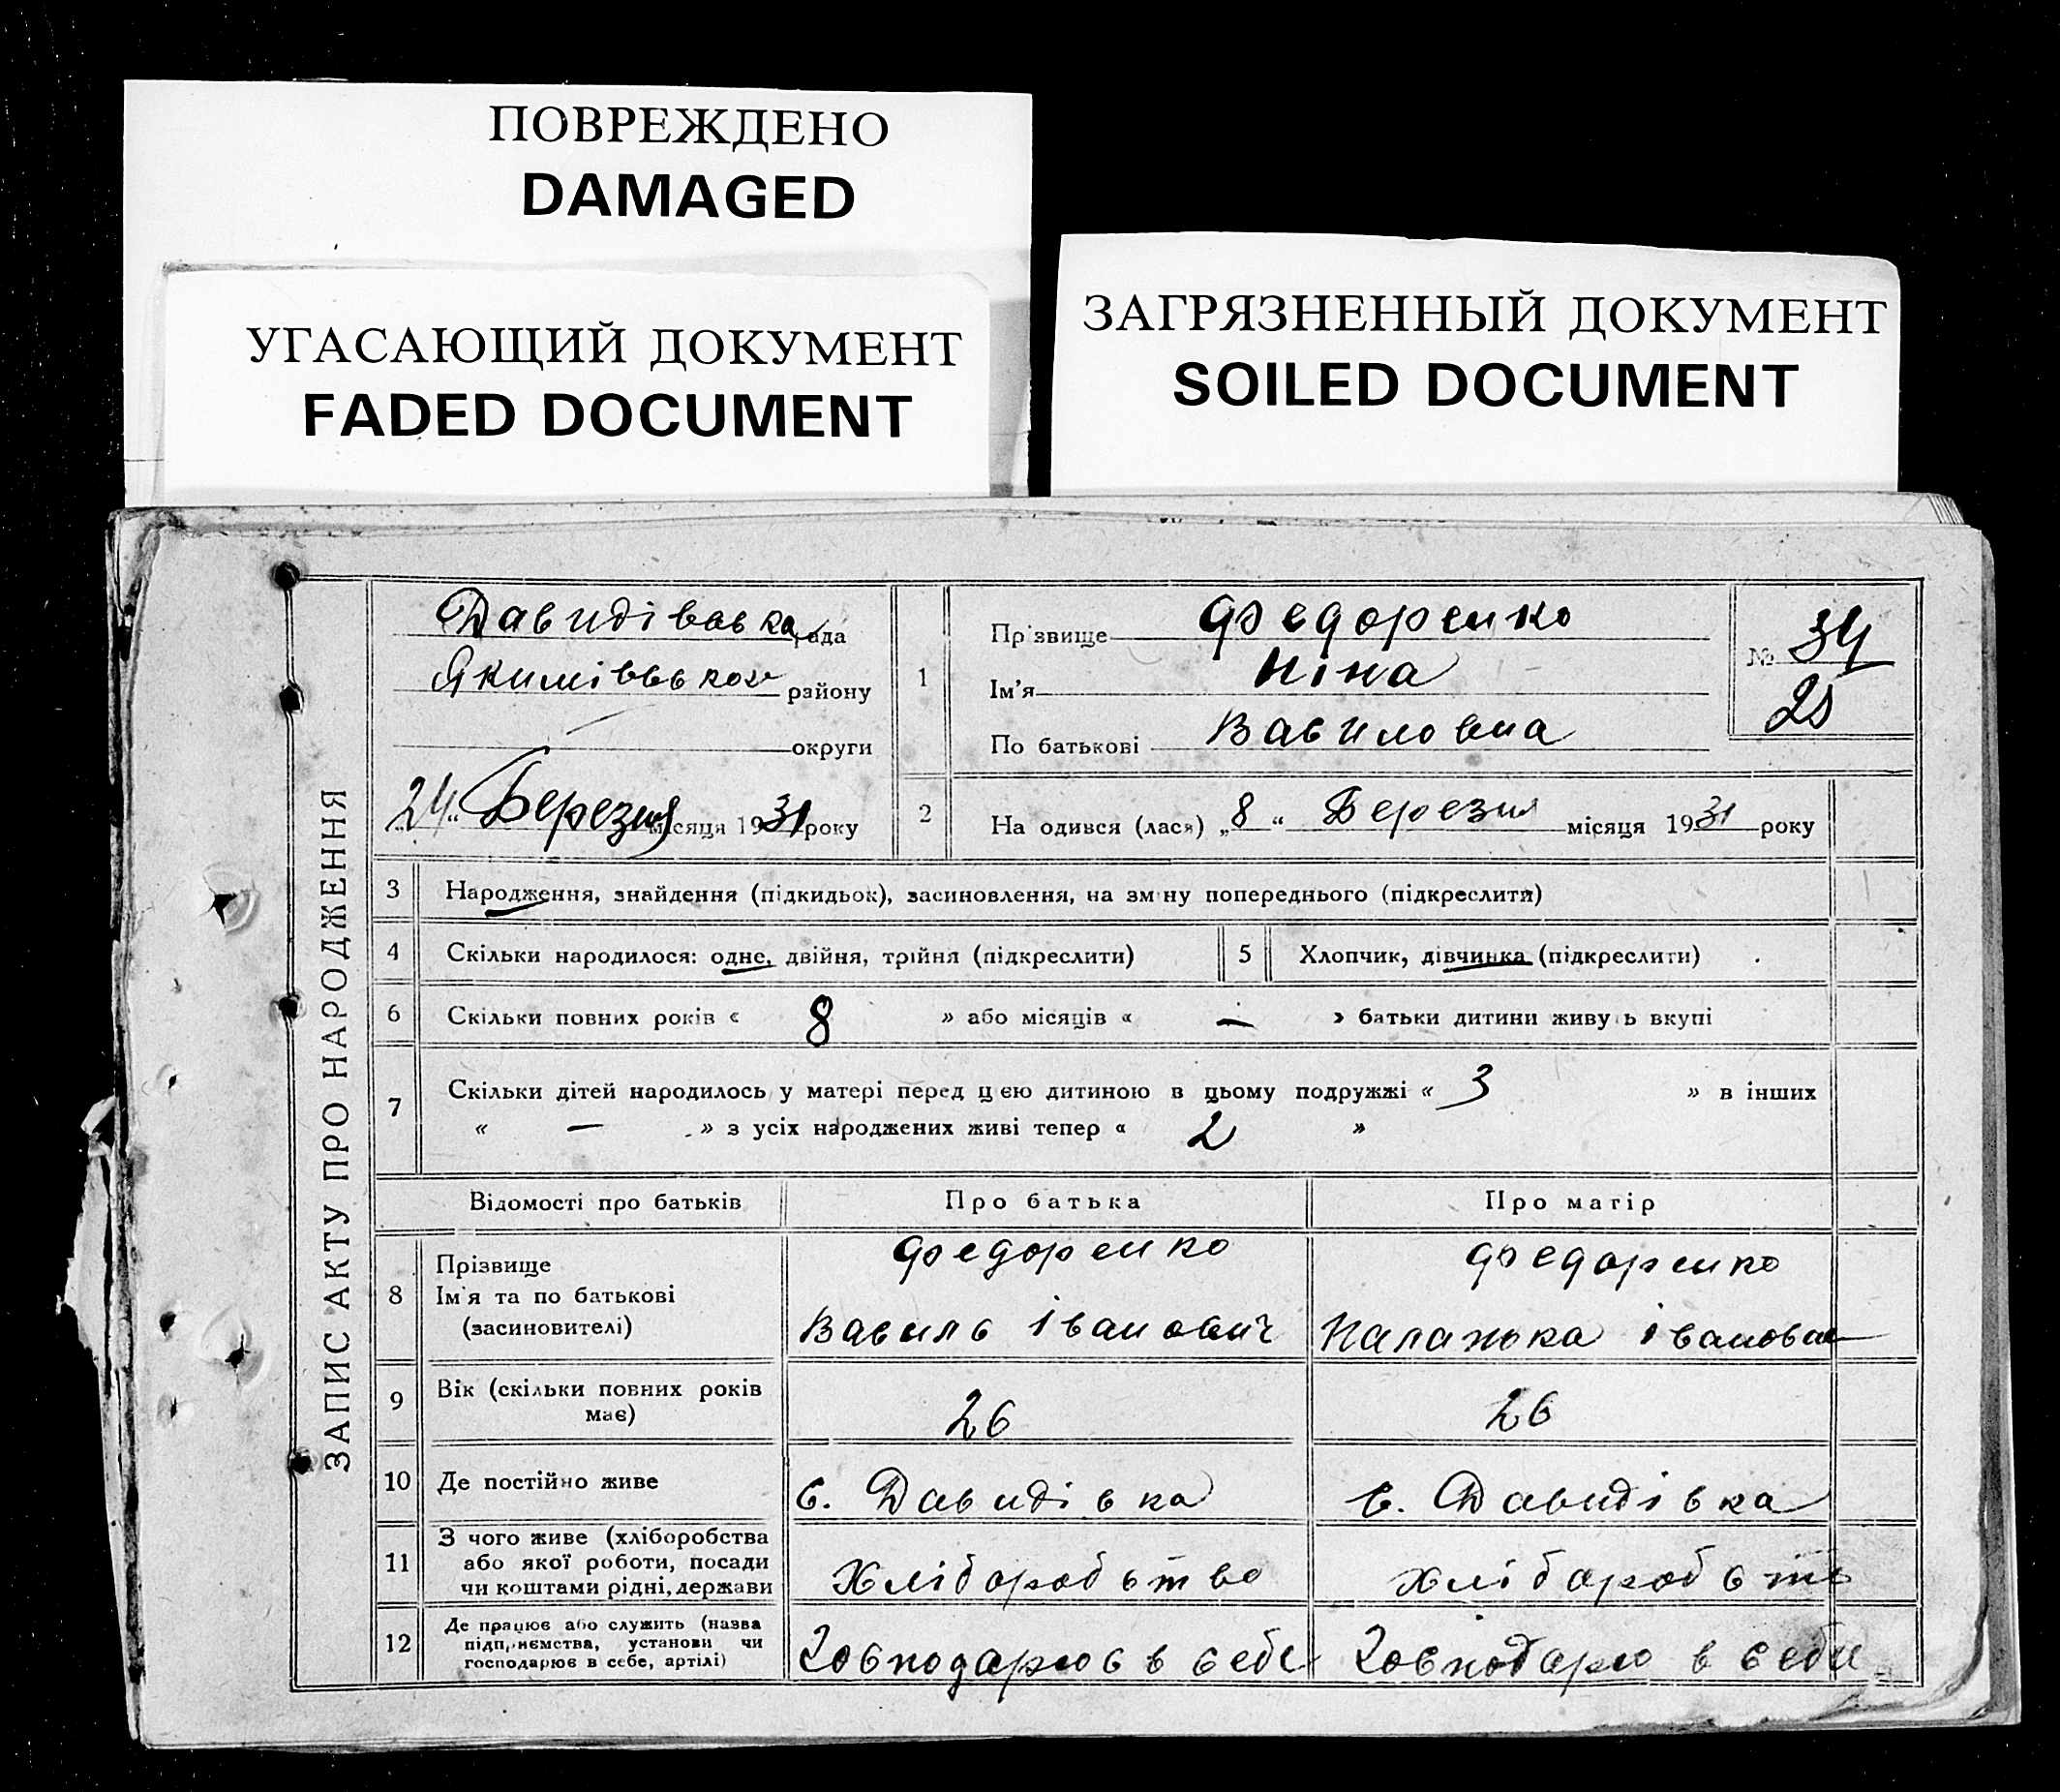 ПОВРЕЖДЕНО
DAMAGED
УГАСАЮЩИЙ ДОКУМЕНТ
FADED DOCUMENT
ЗАГРЯЗНЕННЫЙ ДОКУМЕНТ
SOILED DOCUMENT
ЗАПИС АКТУ ПРО НАРОДЖЕННЯ
рада
району
округи
„24“ Березня місяця 1931 року
1
Прізвище Федоренко
Ім'я Ніна
По батькові Вавиловна
№ 34
25
2
На одився (лася) „8“ Березня місяця 1931 року
3 Народження, знайдення (підкидьок), засиновлення, на зм ну попереднього (підкреслити)
4 Скільки народилося: одне, двійня, трійня (підкреслити)
5 Хлопчик, дівчинка (підкреслити)
6 Скільки повних років « 8 » або місяців « — » батьки дитини живу ь вкупі
7 Скільки дітей народилось у матері перед цією дитиною в цьому подружжі « 3 » в інших
« — » з усіх народжених живі тепер « 2 »
Відомості про батьків Про батька Про матір
8 Прізвище
Ім'я та по батькові
(засиновителі)
Федоренко
Вавиль Іванович
Федоренко
Іванов
9 Вік (скільки повних років
має)
26
26
10 Де постійно живе
с. Давидівка
с. Давидівка
11 З чого живе (хліборобства
або якої роботи, посади
чи коштами рідні, держави
Хліборобство
хліборобств
12 Де працює або служить (назва
підприємства, установи чи
господарює в себе, артілі)
Господарює в себе
Господарю в себе